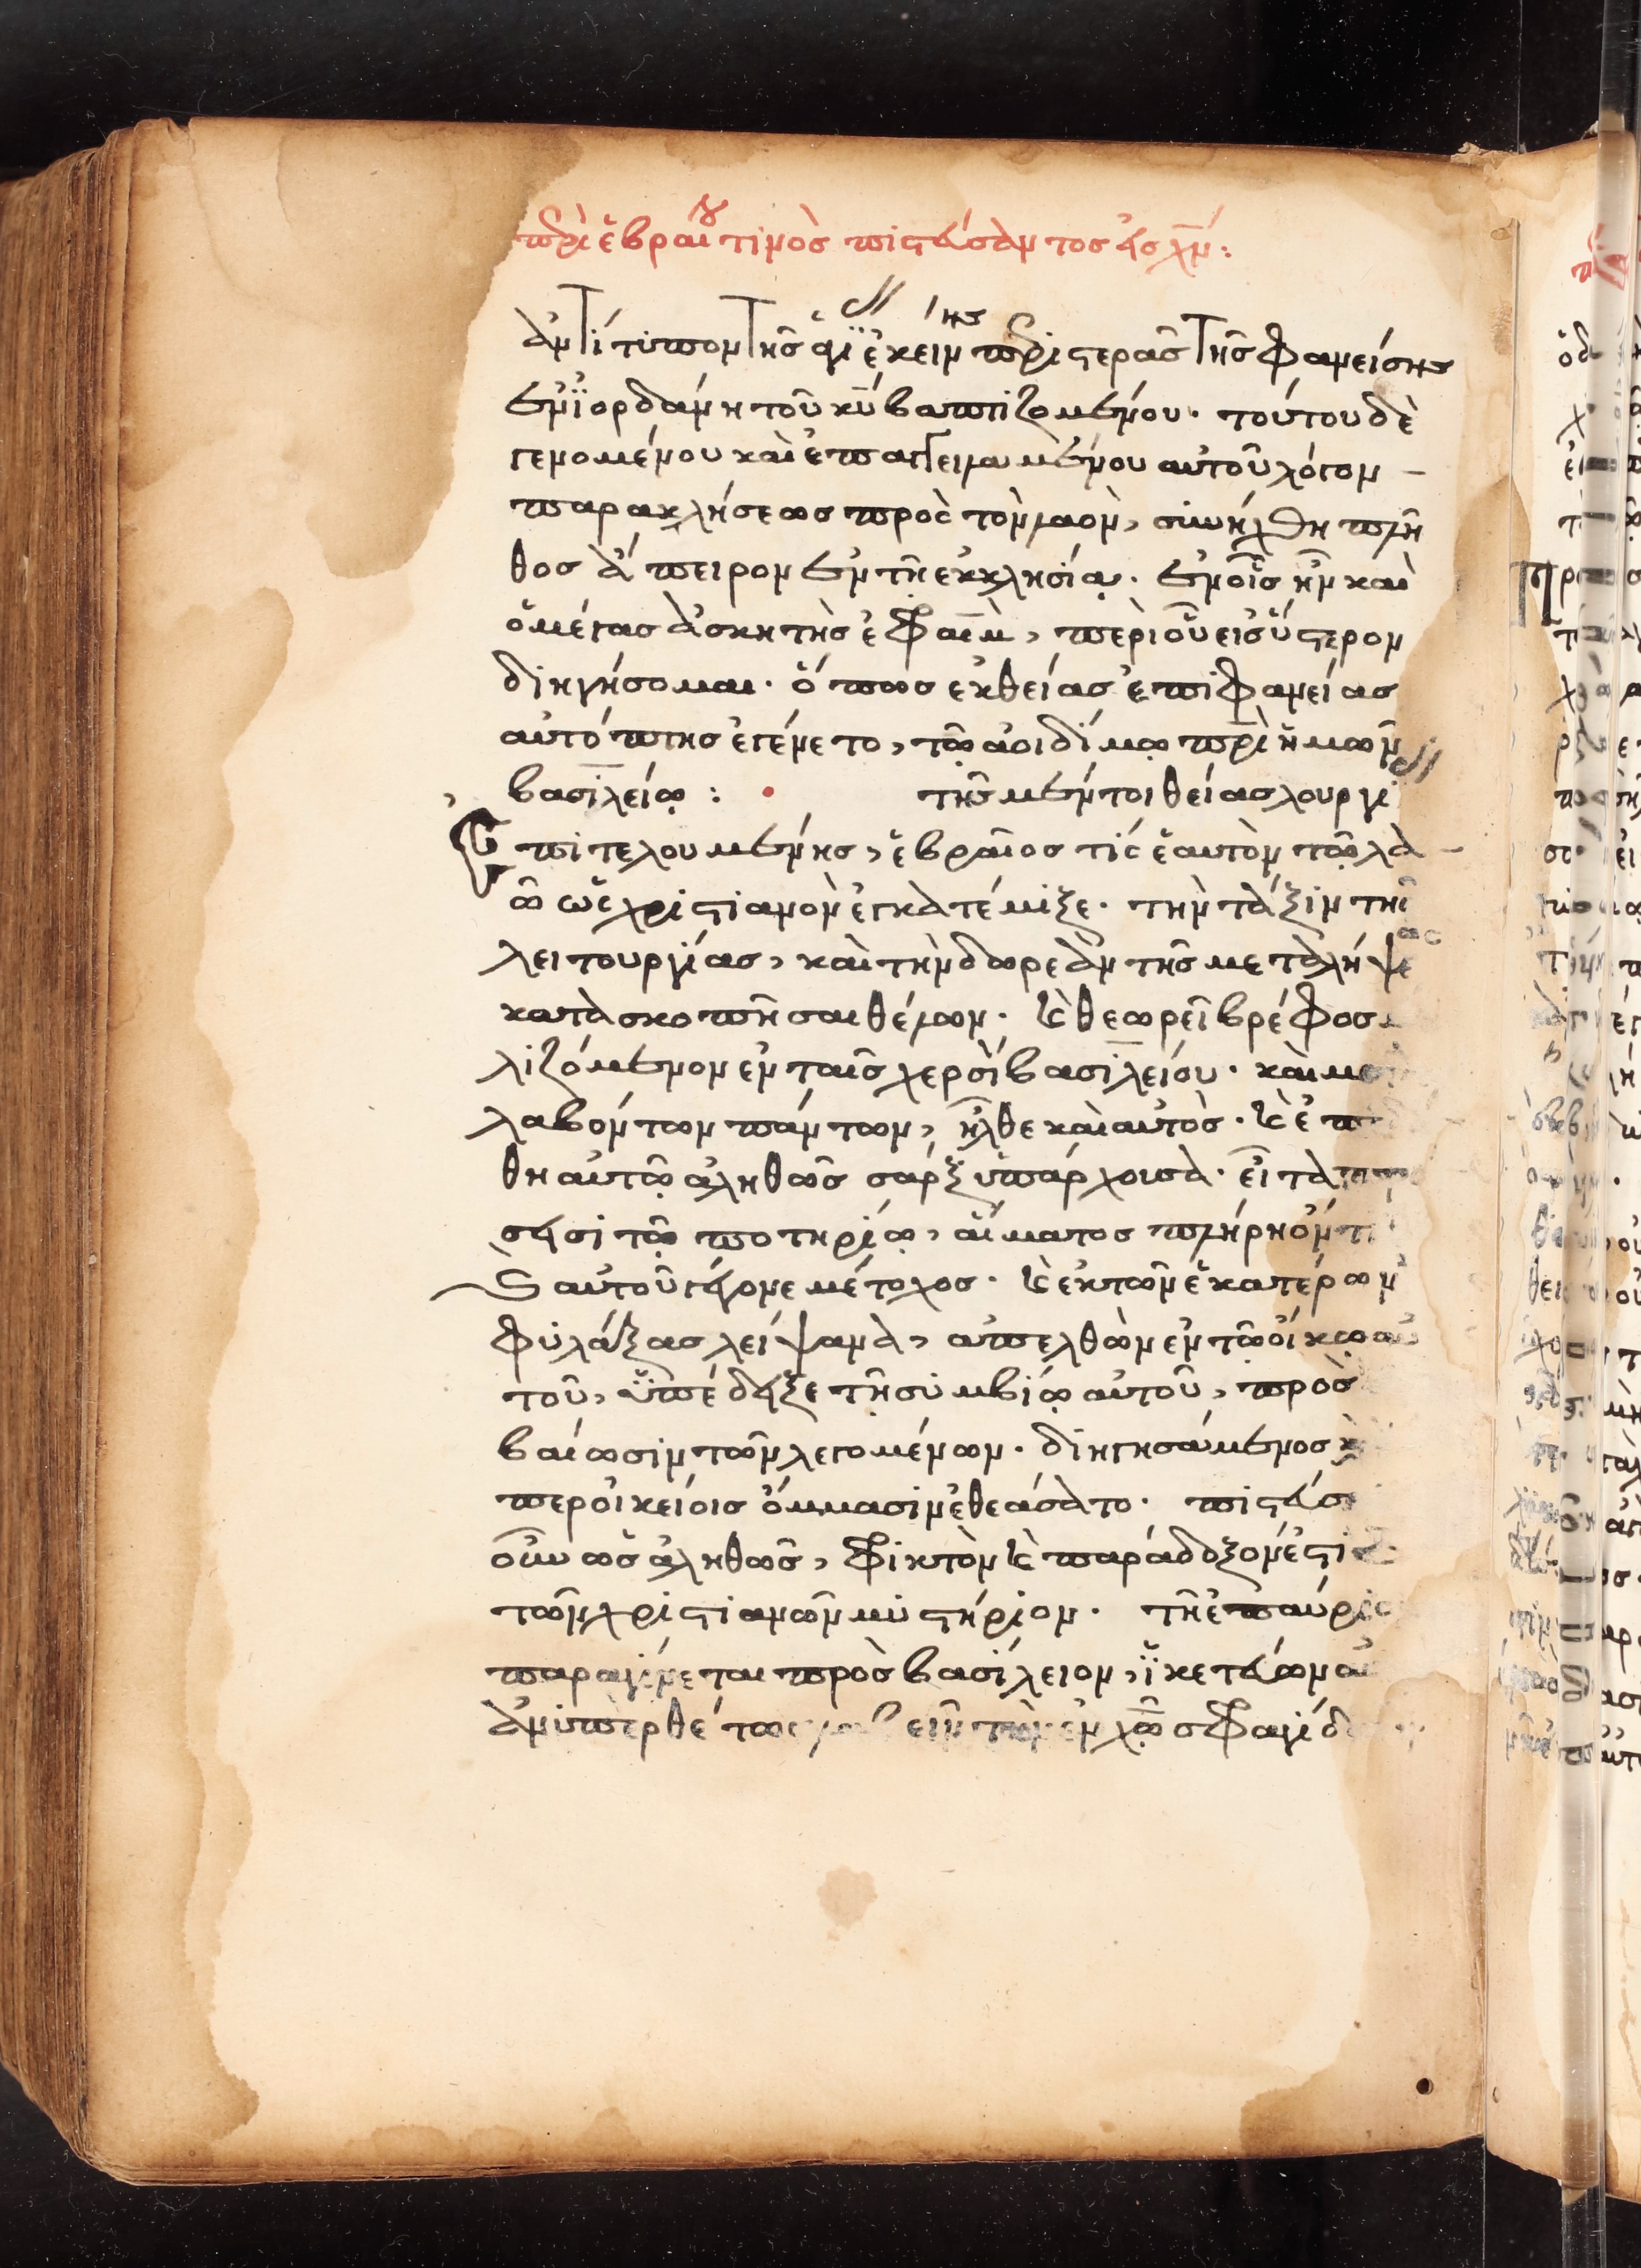 περὶ ἑβραίου τινὸς πιστεύσαντος εἰς χν̄:
ἀντίτυπον τῆς ἁγί ἐκείνης περιστερᾶς τῆς φανείσης
ἐν ἰορδάνη τοῦ κῡ βαπτιζομένου· τούτου δὲ
γενομένου καὶ ἐπαγγειλαμένου αὐτοῦ λόγον
παρακλήσεως πρὸς τὸν λαὸν, συνήχθη πλῆ
θος ἄπειρον ἐν τῆ ἐκκλησία. ἐν οἷς ἦν καὶ
ὁ μέγας ἀσκητὴς ἐφραὶμ, περὶ οὗ εἰσύστερον
διηγήσομαι· ὅπως ἐκ θείας ἐπιφανείας
αὐτόπτης ἐγένετο, τῶ ἀοιδίμω πρὶ ἡμῶν
βασιλείω: τῆς μέντοι θείας λουργί
ἐπιτελουμένης, ἑβραῖος τίς ἑαυτὸν τῶ λα
ῶ ὡς χριστιανὸν ἐγκατέμιξε· τὴν τάξιν τῆς
λειτουργίας, καὶ τὴν δωρεὰν τῆς μεταλήψε
ως
κατασκοπῆσαι θέλων· καὶ θεωρεῖ βρέφος
λιζόμενον ἐν ταῖς χερσὶ βασιλείου· καὶ με
λαβόντων πάντων, ἦλθε καὶ αὐτὸς· καὶ ἐ
θη αὐτῶ ἀληθῶς σάρξ ὑπάρχουσα· εἶτα
σεισι τῶ ποτηρίω, αἵματος πλήρη ὄντι
καὶ αὐτοῦ γέγονε μέτοχος· καὶ ἐκ τῶν ἑκατέρων
φυλάξας λείψανα, ἀπελθὼν ἐν τῶ οἴκω αὐ
τοῦ, ὑπέδειξε τῆ συμβίω αὐτοῦ, πρὸς
βαίωσιν τῶν λεγομένων· διηγησάμενος
περ οἰκείοις ὄμμασιν ἐθεάσατο· πιστεύσ
οὖν ὡς ἀληθῶς, φρικτὸν καὶ παράδοξον ἐστι
τῶν χριστιανῶν μυστήριον· τῆ ἐπαύριο
παραγίνεται πρὸς βασίλειον, ἱκετεύων αὐ
ἀνυπερθέτως λαβεῖν τὴν ἐν χῶ σφραγίδ